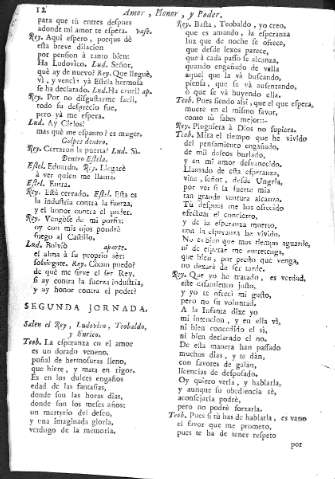 12
Amor, Honor, y Poder.
para que tú entres despues
adonde mi amor te espera. vase.
Rey. Aqui espero, porque dè
esta breve dilacion
por pension à tanto bien:
Ha Ludovico. Lud. Señor,
què ay de nuevo? Rey. Que lleguè,
vi, y vencì: yà Estela hermosa
se ha declarado. Lud. Ha cruel! ap.
Rey. Por no disgustarme facil,
todo su desprecio fue,
pero yà me espera.
Lud. Ay Cielos!
mas què me espanto? es muger.
Golpes dentro.
Rey. Cerraron la puerta? Lud. Si.
Dentro Estela.
Estel. Eduardo. Rey. Lleguè
à ver quien me llama.
Estel. Entra.
Rey. Està cerrado. Estel. Esta es
la industria contra la fuerza,
y el honor contra el poder.
oy con mis ojos pondrè
fuego al Castillo.
Lud. Bolviò aparte.
el alma à su proprio sèr:
sossieguese. Rey. Còmo puedo?
de què me sirve el ser Rey,
si ay contra la fuerza industria,
y ay honor contra el poder?
SEGUNDA JORNADA.
Salen el Rey, Ludovico, Teobaldo,
y Enrico.
Teob. La esperanza en el amor
es un dorado veneno,
puñal de hermosuras lleno,
que hiere, y mata en rigor.
Es en los dulces engaños
edad de las fantasias,
donde son las horas dias,
donde son los meses años:
un martyrio del deseo,
y una imaginada gloria,
verdugo de la memoria.
Rey. Basta, Teobaldo, yo creo,
que es amando, la esperanza
luz que de noche se ofrece,
que desde lexos parece,
que à cada passo se alcanza,
quando engañado de valla
aquel que la và buscando,
piensa, que se và ausentando,
ò que se và huyendo ella.
Teob. Pues siendo assi, que el que espera,
muere en el mismo favor,
como tù sabes mejor:-
Rey. Pluguiera à Dios no supiera.
Teob. Mira el tiempo que he vivido
del pensamiento engañado,
de mil deseos burlado,
y en mi amor desvanecido.
Llamado de esta esperanza,
vine, señor, desde Ungria,
por ver si la suerte mia
tan grande ventura alcanza.
Tu despues me has ofrecido
efectuar el concierto,
y de la esperanza muerto,
con la esperanza he vivido.
No es bien que mas tiempo aguarde,
ni de esperar me entretenga,
que bien, por presto que venga,
no dexarà de ser tarde.
Rey. Que yo he tratado, es verdad,
este casamiento justo,
y yo te ofrecì mi gusto,
pero no su voluntad.
A la Infanta dixe yo
mi intencion, y en ella vì,
ni bien concedido el sì,
ni bien declarado el no.
De esta manera han passado
muchos dias, y te dàn,
con favores de galàn,
licencias de desposado.
Oy quiero verla, y hablarla,
y aunque su obediencia sè,
aconsejarla podrè,
pero no podrè forzarla.
Teob. Pues si tù has de hablarla, es vano
el favor que me prometo,
pues te ha de tener respeto
por